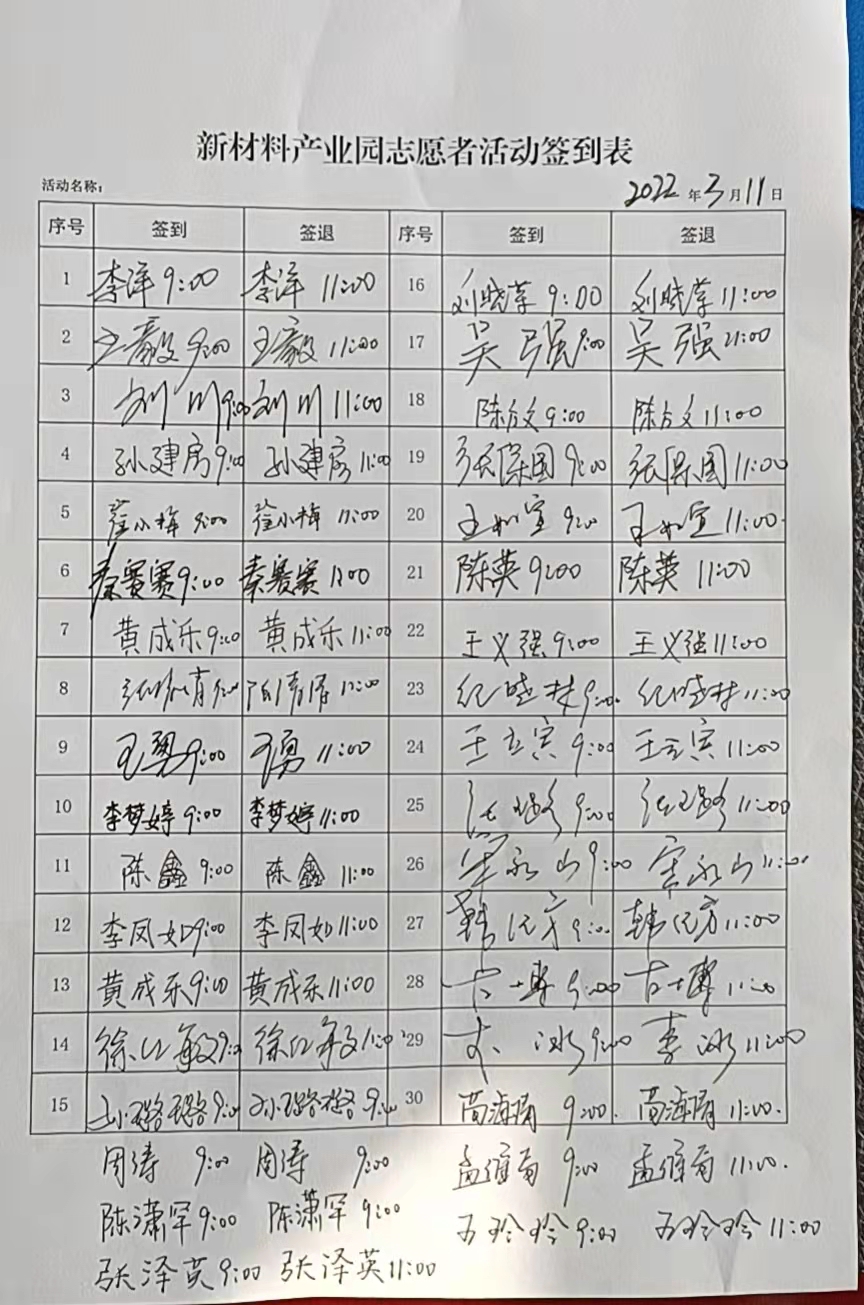 新材料产业园志愿者活动签到表
活动名称:
2022 年 3 月 11 日
序号 签到 签退 序号 签到 签退
1 李洋 9:00 李洋 11:00 16 刘晓莘 9:00 刘晓莘 11:00
2 王毅 9:00 王毅 11:00 17 吴强 9:00 吴强 11:00
3 刘川 9:00 刘川 11:00 18 陈放 9:00 陈放 11:00
4 孙建房 9:00 孙建房 11:00 19 张保国 9:00 张保国 11:00
5 崔小梅 9:00 崔小梅 11:00 20 王如宣 9:00 王如宣 11:00
6 秦赛赛 9:00 秦赛赛 11:00 21 陈英 9:00 陈英 11:00
7 黄成乐 9:00 黄成乐 11:00 22 王义强 9:00 王义强 11:00
8 9:00 11:00 23 纪晓林 9:00 纪晓林 11:00
9 王勇 9:00 王勇 11:00 24 王立宾 9:00 王立宾 11:00
10 李梦婷 9:00 李梦婷 11:00 25 9:00 11:00
11 陈鑫 9:00 陈鑫 11:00 26 永山 9:00 永山 11:00
12 李凤如 9:00 李凤如 11:00 27 韩 9:00 韩 11:00
13 黄成乐 9:00 黄成乐 11:00 28 9:00 11:00
14 徐红敏 9:00 徐红敏 11:00 29 李冰 9:00 李冰 11:00
15 孙璐璐 9:00 孙璐璐 9:00 30 高海 9:00 高海 11:00
周涛 9:00 周涛 9:00 孟维 9:00 孟维 11:00
陈潇罕 9:00 陈潇罕 9:00 玲玲 9:00 玲玲 11:00
张泽英 9:00 张泽英 11:00